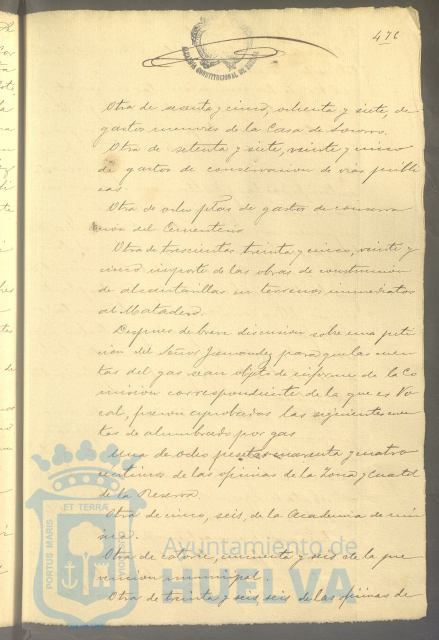 476
ALCALDIA CONSTITUCIONAL DE HUELVA
Otra de sesenta y cinco, ochenta y siete, de
gastos menores de la Casa de Socorro.
Otra de setenta y siete, veinte y cinco
de gastos de conservacion de vias públi
cas.
Otra de ocho ptas de gastos de conserva
cion del Cementerio
Otra de trescientas treinta y cinco, veinte y
cinco importe de las obras de construccion
de alcantarillas en terrenos inmediatos
al Matadero.
Despues de breve discusion sobre una peti
cion del Señor Fernandez para que las cuen
tas del gas sean objeto de informe de la Co
mision correspondiente de la que es Vo
cal, fueron aprobadas las siguientes cuen
tas de alumbrado por gas
Una de ocho pesetas cuarenta y cuatro
centimos de las oficinas de la Zona y Cuartel
de la Reserva.
Otra de cinco, seis, de la Academia de mú
sica.
Otra de catorce, cincuenta y seis de la pre
vencion municipal.
Otra de treinta y seis seis de las oficinas de
PORTUS MARIS ET TERRAE
Ayuntamiento de
HUELVA